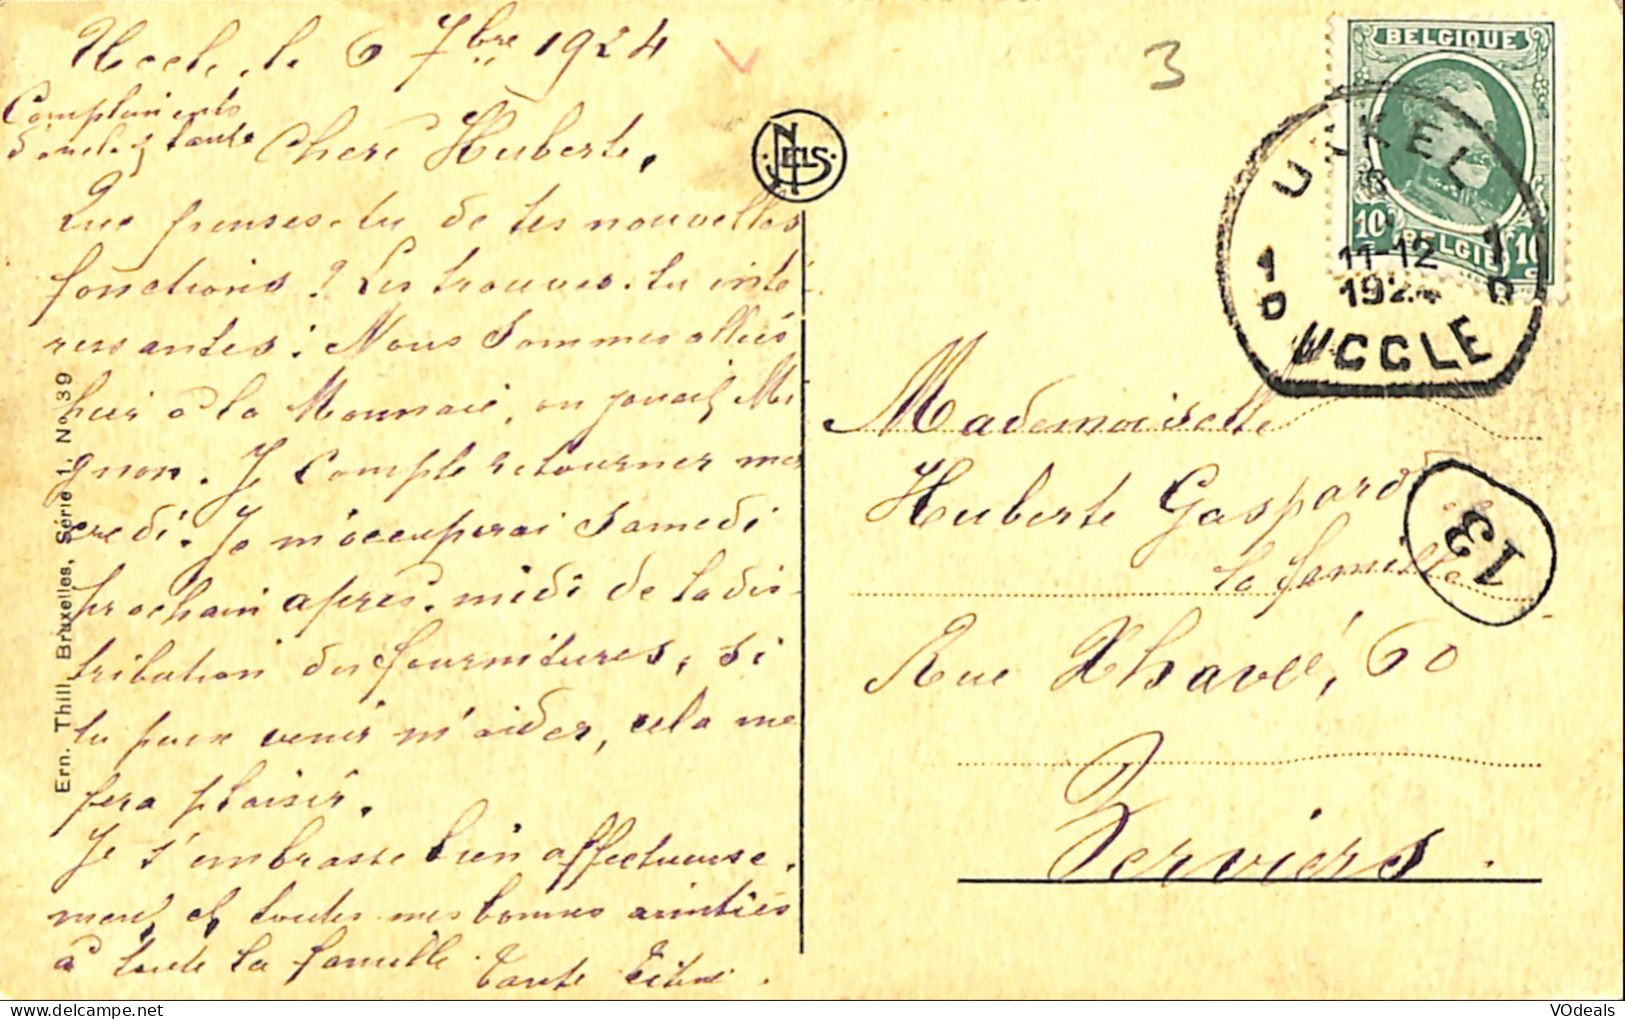 Uccle, le 6 7bre 1924
Compliments
d'oncle & tante
Chère Huberte,
Que penses-tu de tes nouvelles
fonctions? Les trouves-tu inté-
ressantes? Nous sommes allés
hier à la Monnaie, on jouait Mi
gnon. Je compte retourner mer
credi. Je m'occuperai samedi
prochain après-midi de la dis-
tribution des fournitures, si
tu peux venir m'aider, cela me
fera plaisir.
Je t'embrasse bien affectueuse-
ment, et toutes mes bonnes amitiés
à toute la famille. Tante
Ern. Thill, Bruxelles, Série 1, No 39
NELS
3
BELGIQUE
10 BELGIE 10
UKKEL
6
11-12
1924
1 D
1 D
UCCLE
Mademoiselle
Huberte Gaspard
la famille
13
Rue Xhavée, 60
Verviers.
VOdeals